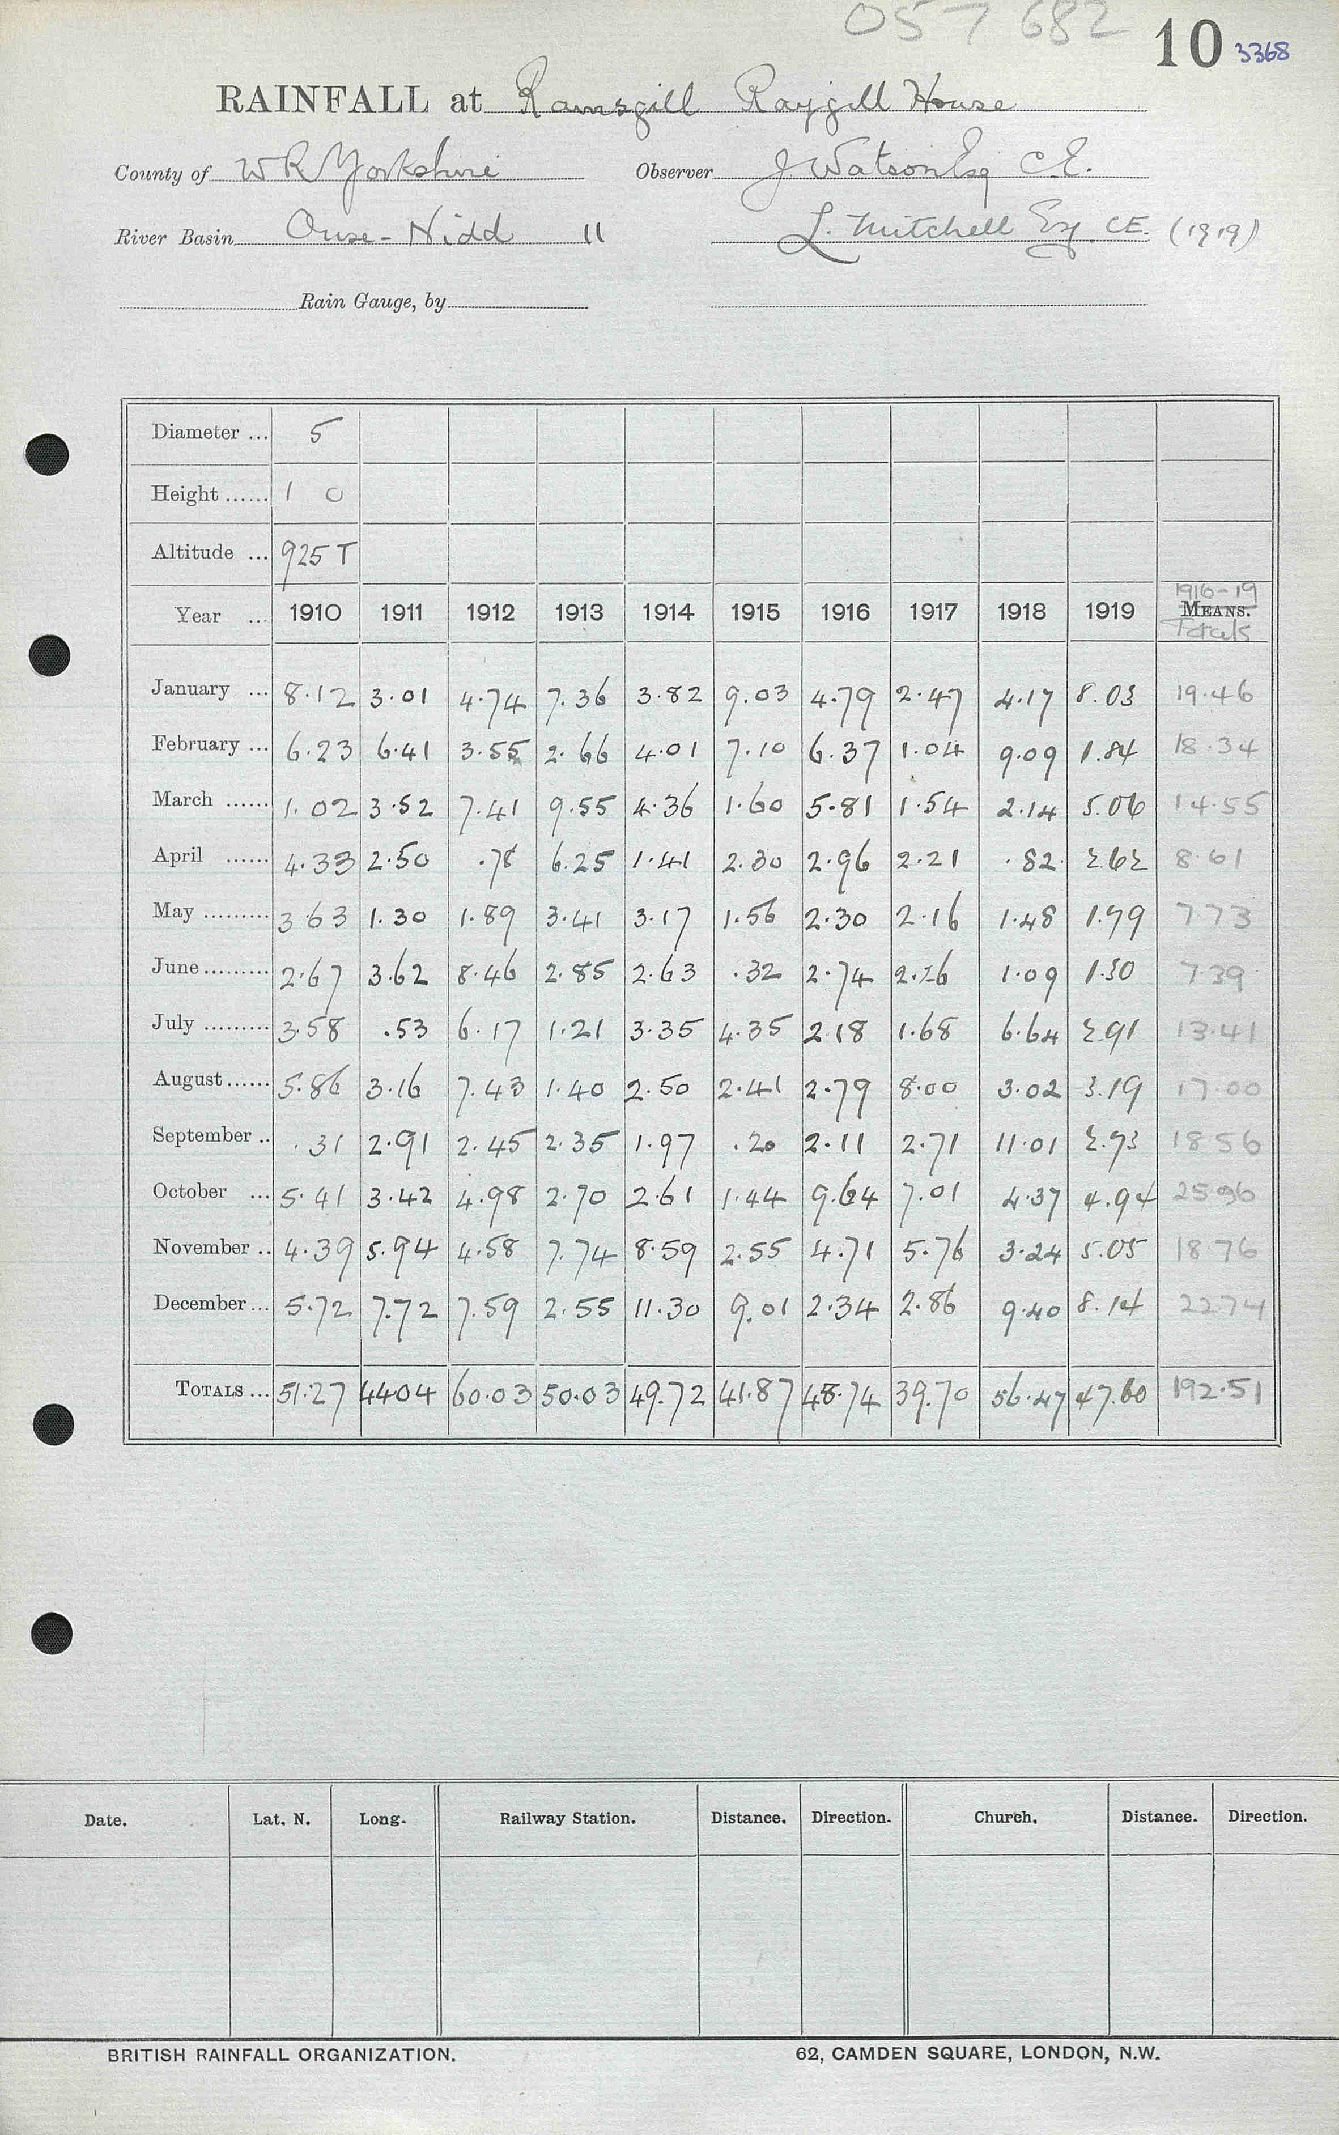 057682
10 3368
RAINFALL at Ramsgill Raygill House
County of W R Yorkshire Observer J. Watson Esq C.E.
River Basin Ouse - Nidd 11 L. Mitchell Esq. CE. (1919)
Rain Gauge, by
Diameter ... 5
Height ...... 1 0
Altitude ... 925 T
1916-19
Year ... 1910 1911 1912 1913 1914 1915 1916 1917 1918 1919 MEANS.
Totals
January ... 8.12 3.01 4.74 7.36 3.82 9.03 4.79 2.47 4.17 8.03 19.46
February ... 6.23 6.41 3.55 2.66 4.01 7.10 6.37 1.04 9.09 1.84 18.34
March ...... 1.02 3.52 7.41 9.55 4.36 1.60 5.81 1.54 2.14 5.06 14.55
April ...... 4.33 2.50 .78 6.25 1.41 2.30 2.96 2.21 .82 2.62 8.61
May ......... 3 63 1.30 1.89 3.41 3.17 1.56 2.30 2.16 1.48 1.79 7.73
June ......... 2.67 3.62 8.46 2.85 2.63 .32 2.74 2.26 1.09 1.30 7.39
July ......... 3.58 .53 6.17 1.21 3.35 4.35 2.18 1.68 6.64 2.91 13.41
August ...... 5.86 3.16 7.43 1.40 2.50 2.41 2.79 8.00 3.02 3.19 17.00
September .. .31 2.91 2.45 2.35 1.97 .20 2.11 2.71 11.01 2.73 18.56
October ... 5.41 3.42 4.98 2.70 2.61 1.44 9.64 7.01 4.37 4.94 25.96
November .. 4.39 5.94 4.58 7.74 8.59 2.55 4.71 5.76 3.24 5.05 18.76
December ... 5.72 7.72 7.59 2.55 11.30 9.01 2.34 2.86 9.40 8.14 22.74
TOTALS ... 51.27 44 04 60.03 50.03 49.72 41.87 48.74 39.70 56.47 47.60 192.51
Date. Lat. N. Long. Railway Station. Distance. Direction. Church. Distance. Direction.
BRITISH RAINFALL ORGANIZATION. 62, CAMDEN SQUARE, LONDON, N.W.